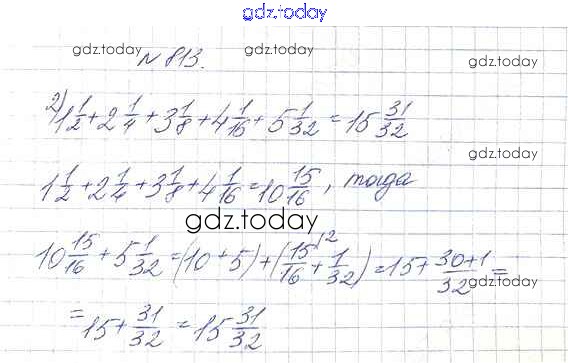 gdz.today
gdz.today gdz.today
№ 813.
2) 1 1/2 + 2 1/4 + 3 1/8 + 4 1/16 + 5 1/32 = 15 31/32
gdz.today
1 1/2 + 2 1/4 + 3 1/8 + 4 1/16 = 10 15/16, тогда
gdz.today
10 15/16 + 5 1/32 = (10 + 5) + (15/16 \2 + 1/32) = 15 + 30+1/32 =
gdz.today gdz.today
= 15 + 31/32 = 15 31/32